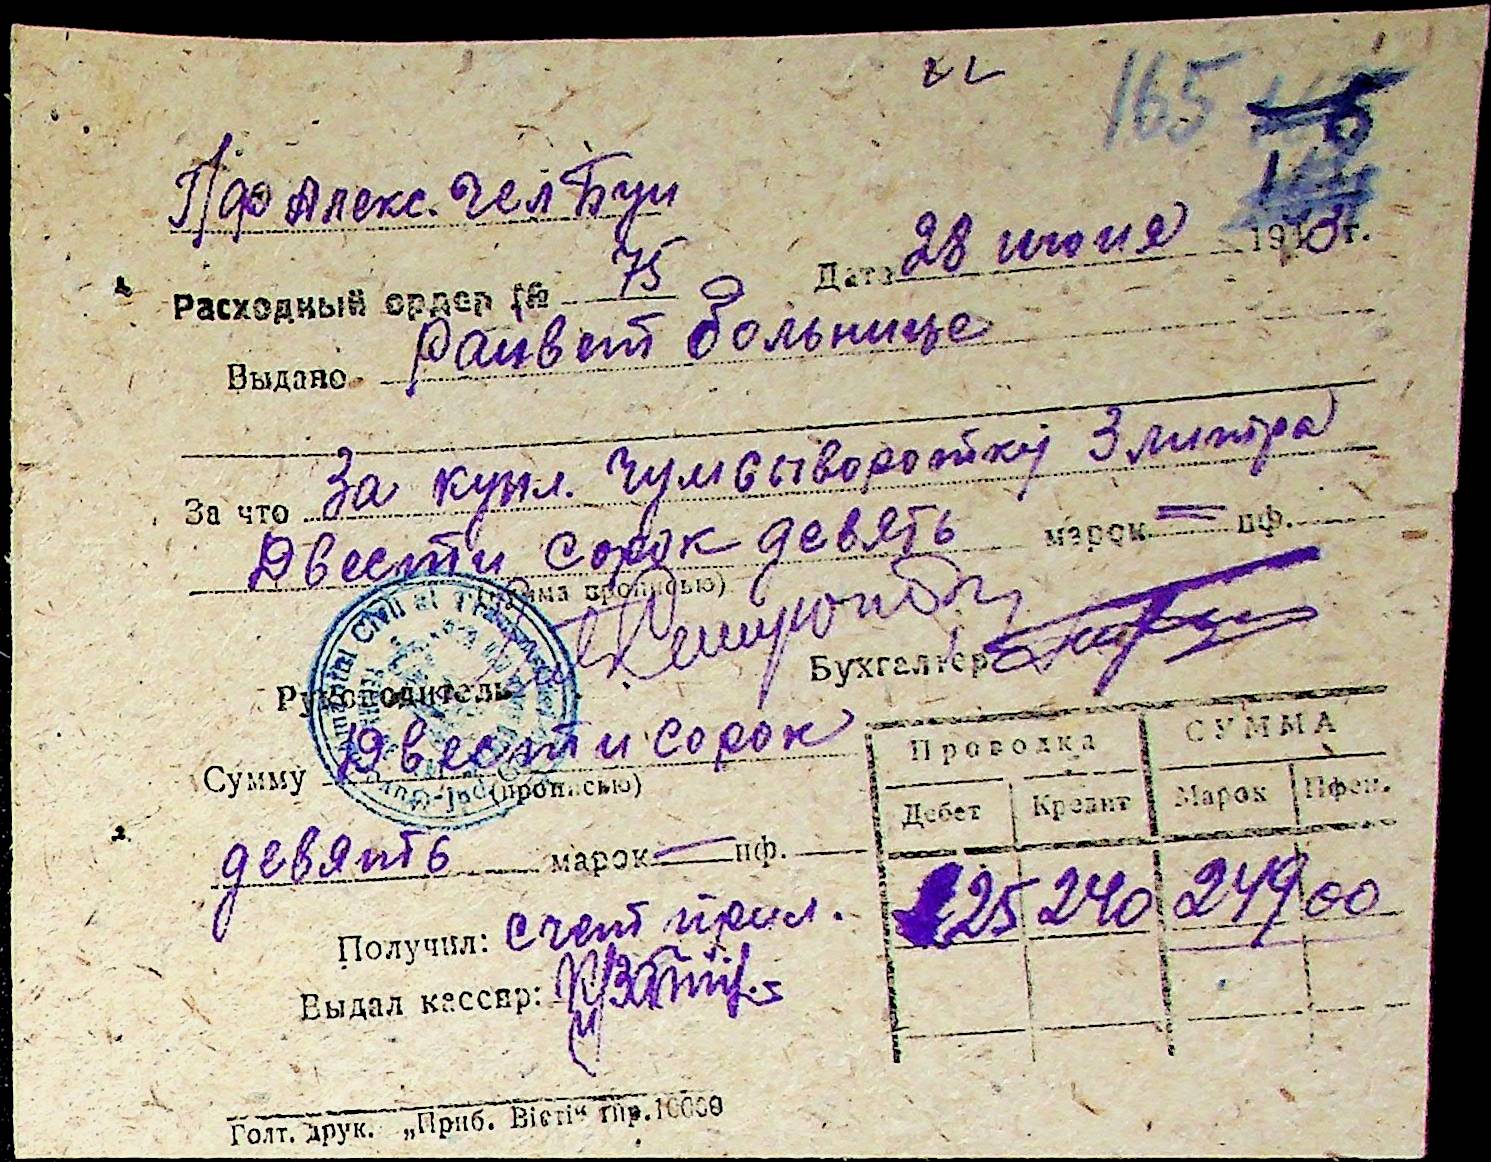 165
Алекс.
Расходный ордер № 75 Дата 28 июня 1943 г.
Выдано Райвет больнице
За что За купл. чумсыворотку 3 литра
Двести сорок девять марок = пф.
(сумма прописью)
Руководитель
Бухгалтер
Сумму Двести сорок
(прописью)
девять марок — пф.
Проводка СУММА
Дебет Кредит Марок Пфен.
25 240 249 00
Получил: счет прил.
Выдал кассир:
Голт. друк. „Приб. Вісті“ тир. 10000